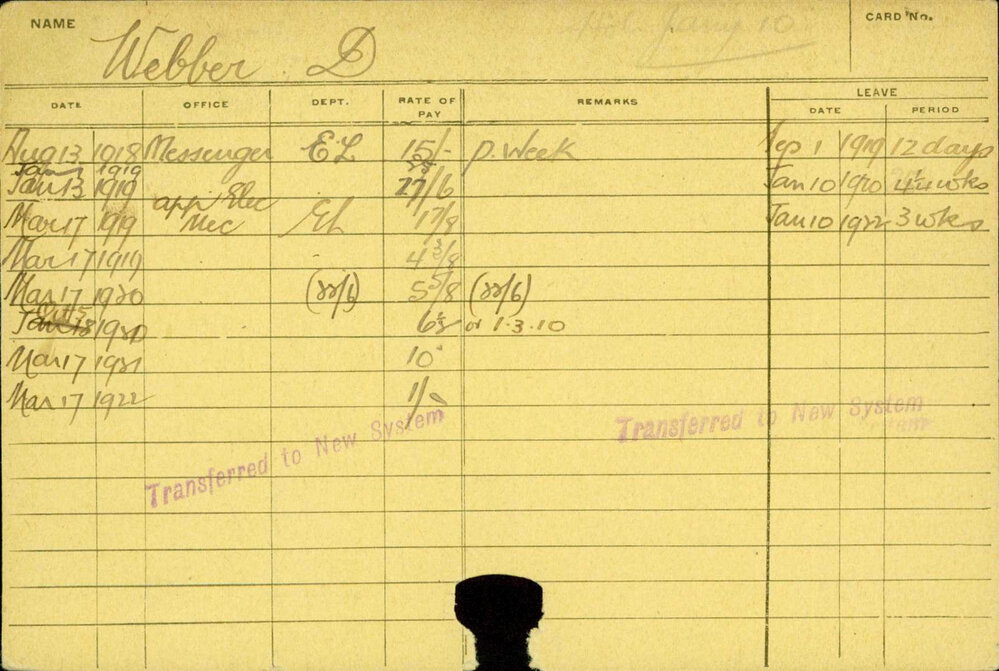 NAME Webber D Jany 10 CARD No.
DATE OFFICE DEPT. RATE OF PAY REMARKS LEAVE DATE PERIOD
Aug 13 1918 Messenger EL 15/- p. Week Sep 1 1919 12 days
Jan 1919
Jan 13 1919 27/6 Jan 10 1920 4 1/4 wks
app Elec
Mar 17 1919 Mec EL 17/8 Jan 10 1922 3 wks
Mar 17 1919 4 3/8
Mar 17 1920 (22/6) 5 5/8 (22/6)
Oct 5
Jan 18 1920 6 1/2 or 1.3.10
Mar 17 1921 10
Mar 17 1922 1/-
Transferred to New System
Transferred to New System